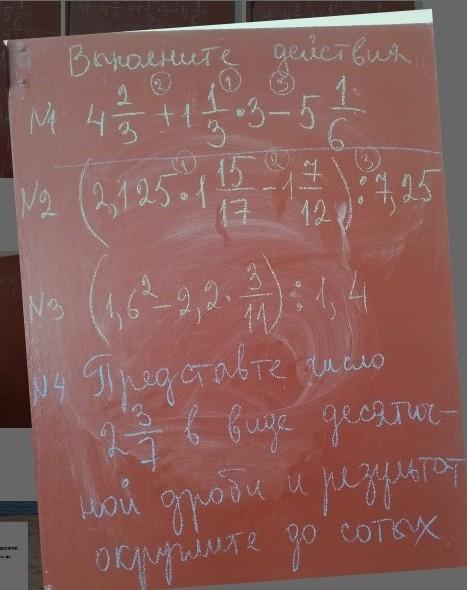 Выполните действия
N1 4 2/3 + 1 1/3 · 3 - 5 1/6
② ① ③
N2 (2,125 · 1 15/17 - 1 7/12) : 7,25
① ② ③
N3 (1,6² - 2,2 · 3/11) : 1,4
N4 Представте число
2 3/7 в виде десятич-
ной дроби и результат
округлите до сотых